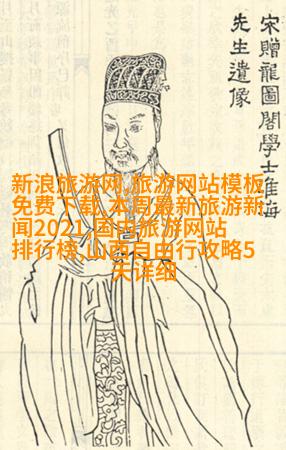 宋贈龍圖閣學士淮海
先生遺像
新浪旅游网,旅游网站模板
免费下载,本周最新旅游新
闻2021,国内旅游网站
排行榜,山西自由行攻略5
天详细